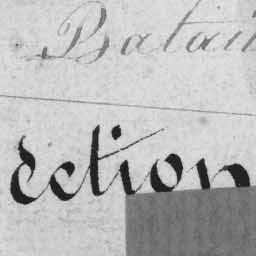 Batail
ection